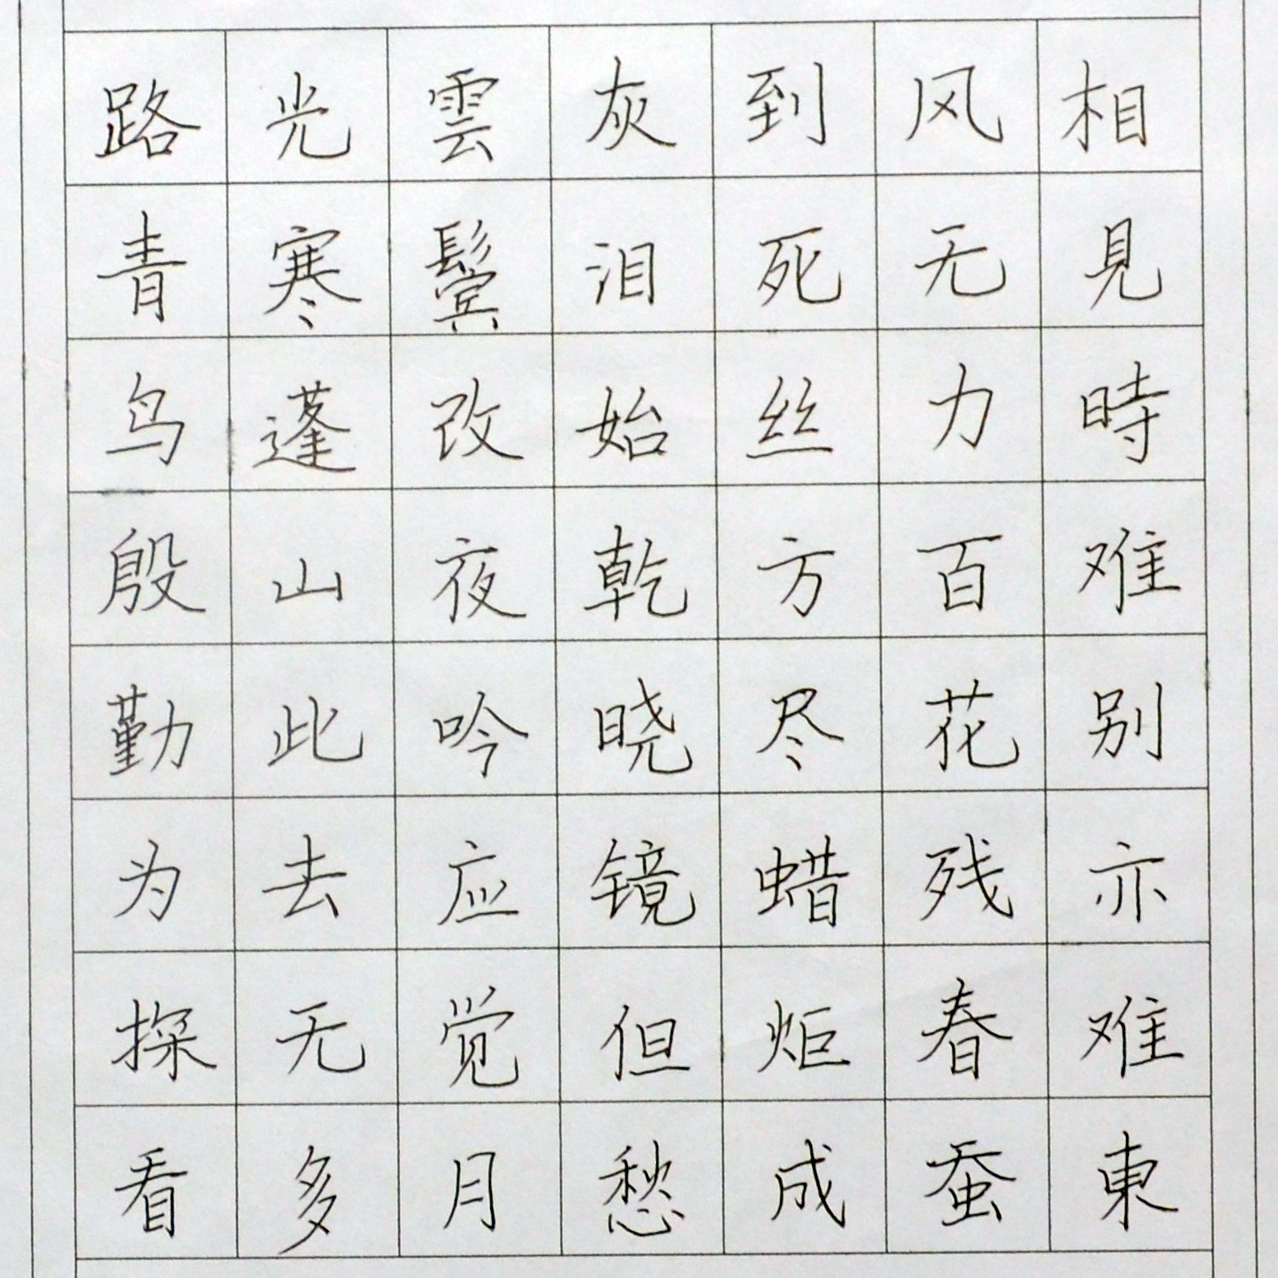 相見時难别亦难東
风无力百花残春蚕
到死丝方尽蜡炬成
灰泪始乾晓镜但愁
雲鬓改夜吟应觉月
光寒蓬山此去无多
路青鸟殷勤为探看